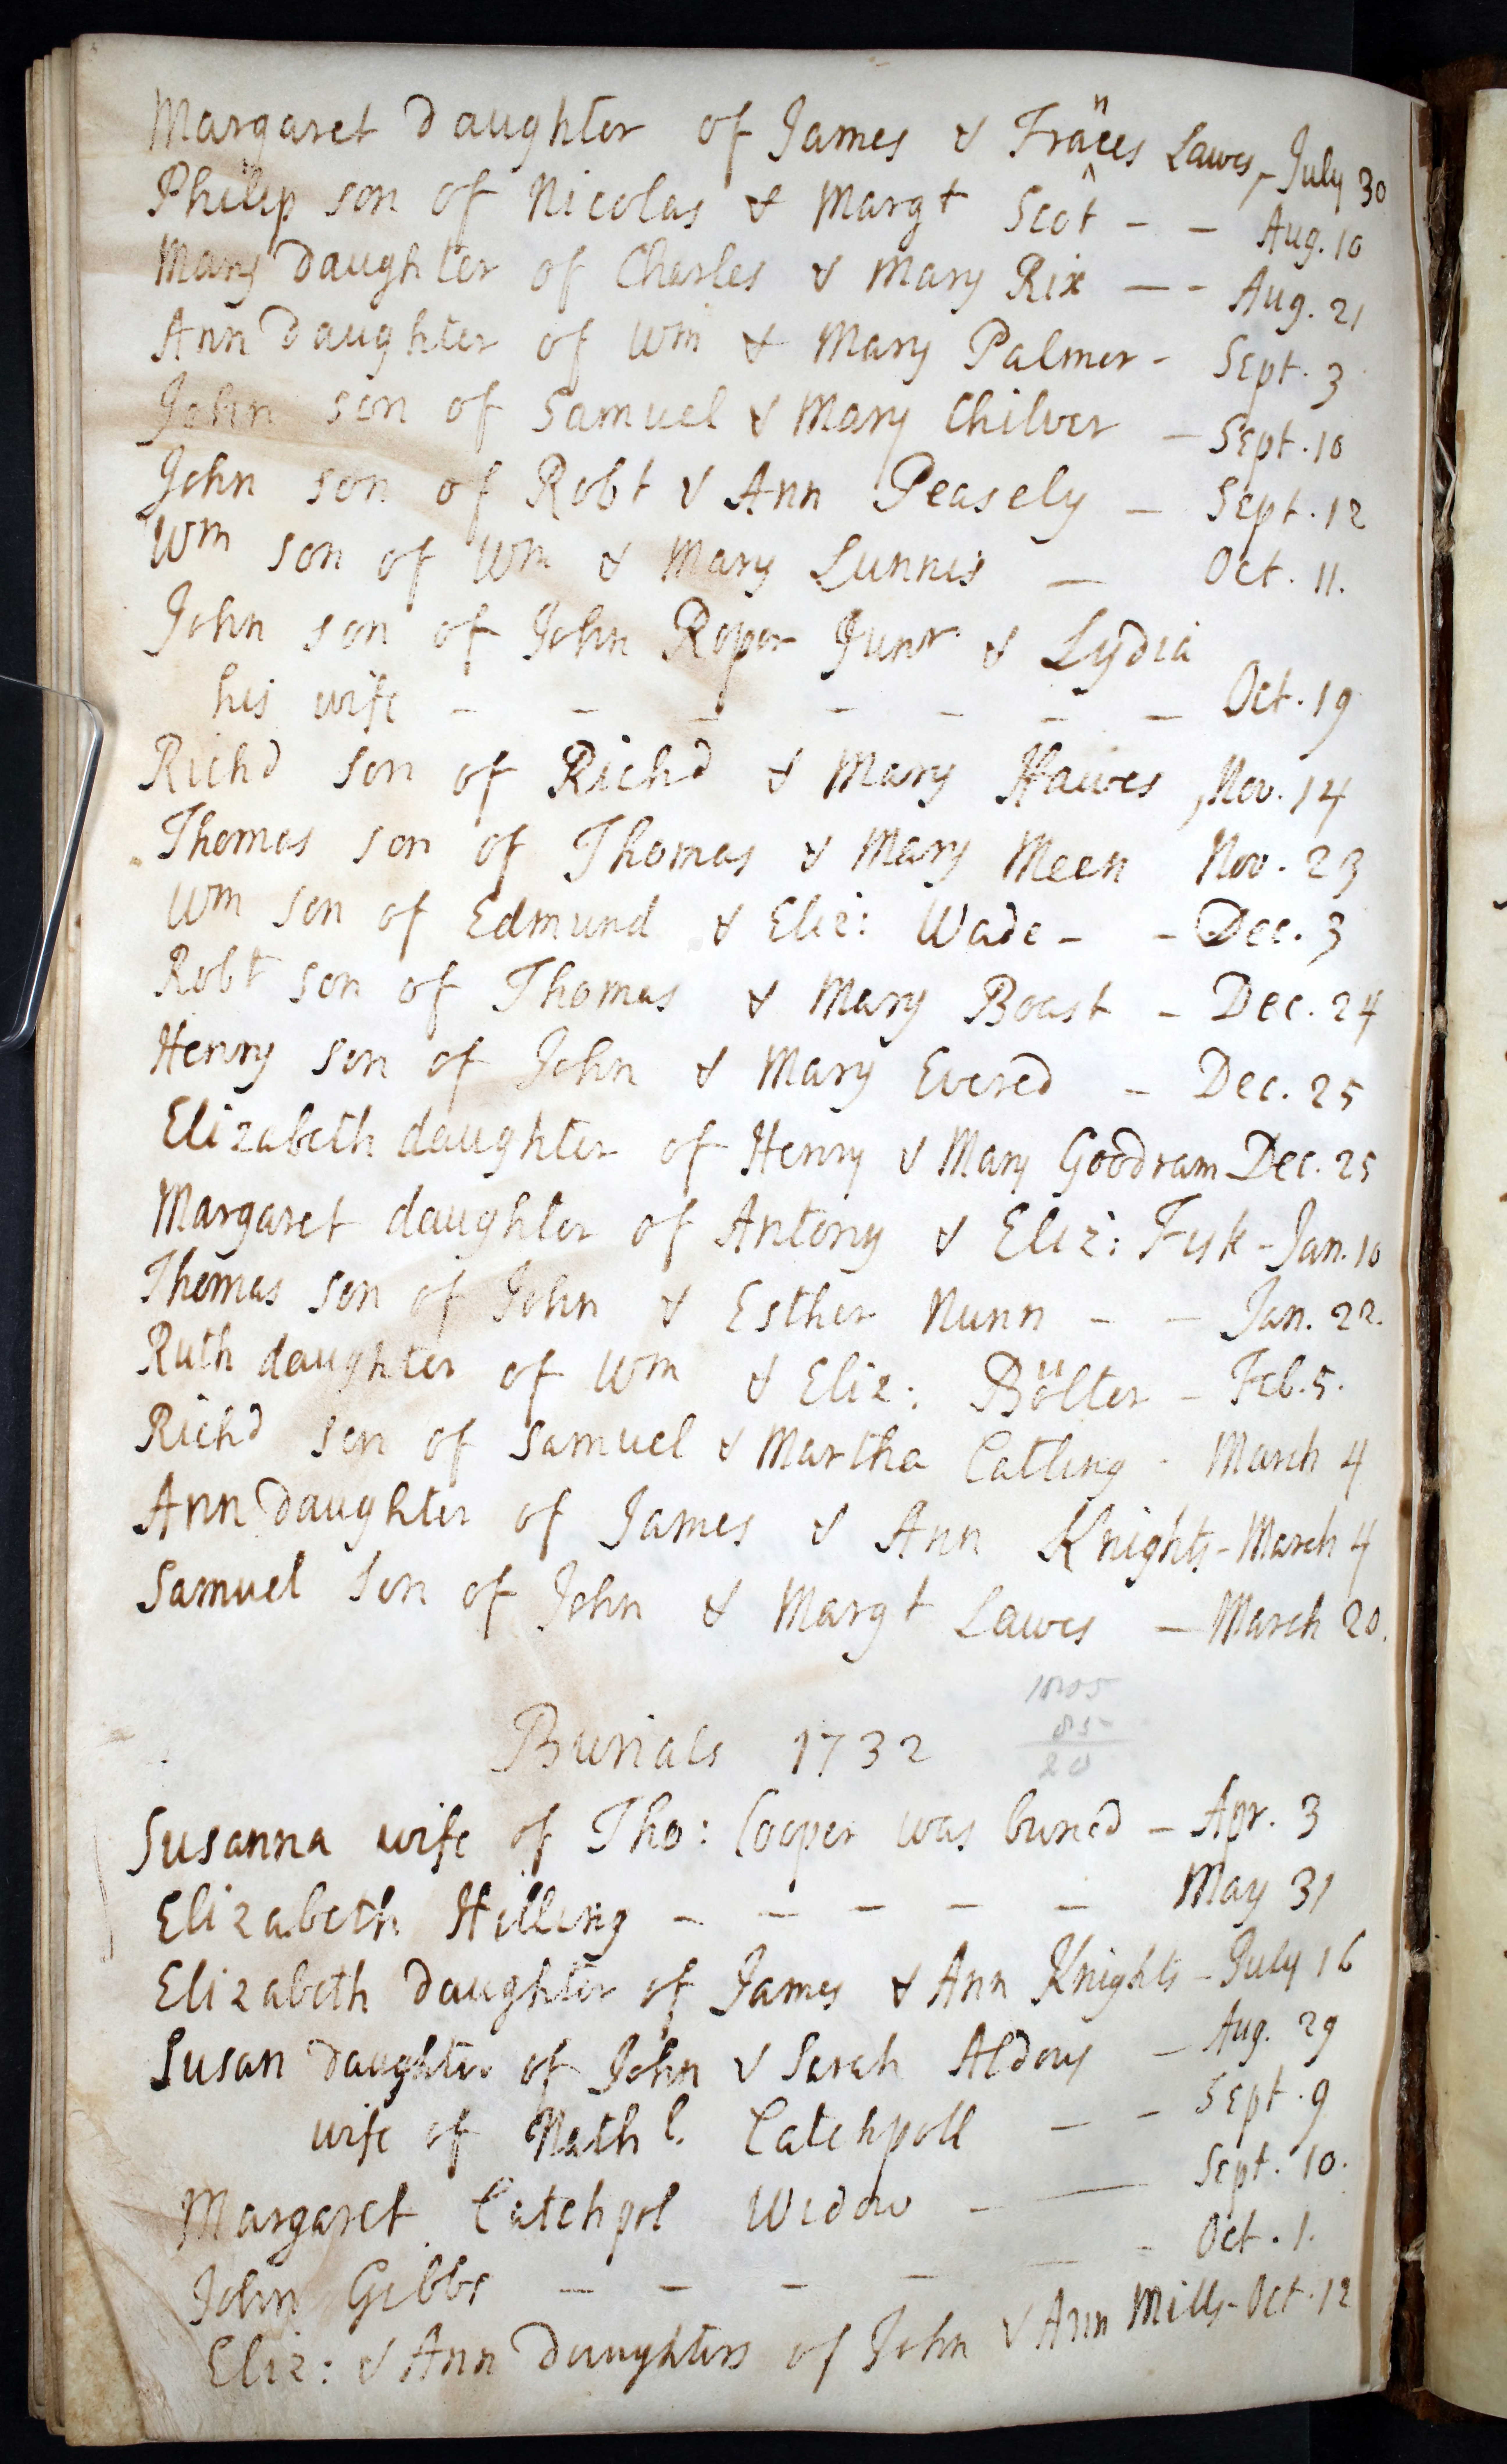 Margaret Daughter of James & Frances Lawes, - July 30
Philip son of Nicolas & Margt Scot - - Aug. 10
Mary Daughter of Charles & Mary Rix - - Aug. 21
Ann Daughter of Wm & Mary Palmer - Sept. 3
John son of Samuel & Mary Chilver - Sept. 10
John son of Robt & Ann Peasely - Sept. 12
Wm son of Wm & Mary Lunnis - Oct. 11.
John son of John Roper Junr & Lydia
his wife - - - - - - - Oct. 19
Richd son of Richd & Mary Hawes, Nov. 14
Thomas son of Thomas & Mary Meen Nov. 23
Wm son of Edmund & Eliz: Wade - - Dec. 3
Robt son of Thomas & Mary Boast - Dec. 24
Henry son of John & Mary Evered - Dec. 25
Elizabeth daughter of Henry & Mary Goodram Dec. 25
Margaret daughter of Antony & Eliz: Fisk - Jan. 10
Thomas son of John & Esther Nunn - - Jan. 22.
Ruth daughter of Wm & Eliz: Bolter - Feb. 5.
Richd son of Samuel & Martha Catling - March 4
Ann Daughter of James & Ann Knights - March 4
Samuel son of John & Margt Lawes - March 20.
85
20
Burials 1732
Susanna wife of Tho: Cooper was buried - Apr. 3
Elizabeth Hilling - - - - - May 31
Elizabeth Daughter of James & Ann Knights - July 16
Susan Daughter of John & Sarah Aldous - Aug. 29
wife of Nathl. Catchpoll - - Sept. 9
Margaret Catchpol Widow - - Sept. 10.
John Gibbs - - - - - - Oct. 1.
Eliz: & Ann Daughters of John & Ann Mills - Oct. 12